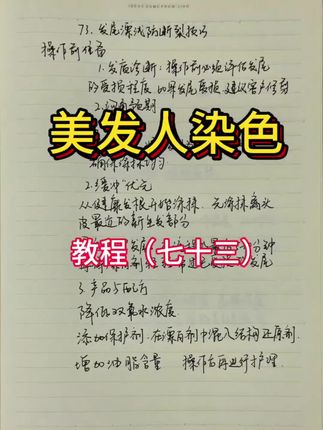 73. 发尾漂浅防断裂技巧
操作前准备
1. 发质诊断：操作前必须评估发尾
的受损程度 如果发尾受损 建议客户修剪
2. 沟通预期
美发人染色
确保涂抹均匀
2. "缓冲"优先
从健康发根开始涂抹. 先涂抹离头
皮最近的新生发部分
分钟
教程（七十三）
发尾
3. 产品与配方
降低双氧水浓度
添加保护剂. 在漂白剂中混入结构还原剂.
增加油脂含量 操作后再进行护理.